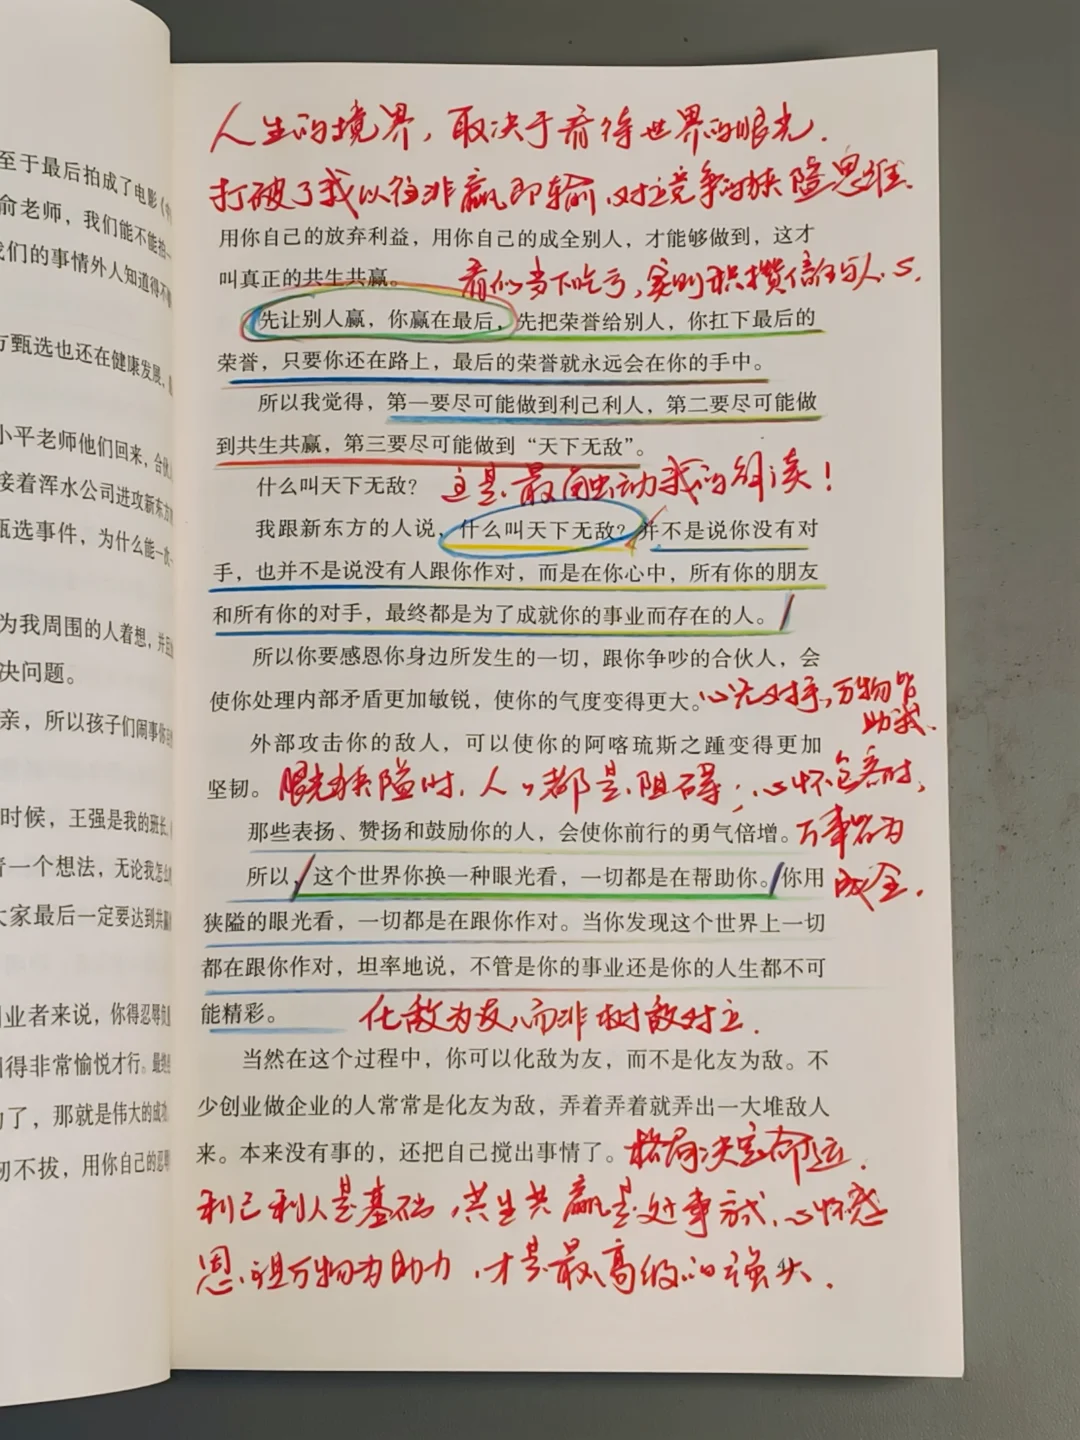 至于最后拍成了电影《
俞老师，我们能不能拍一
我们的事情外人知道得不
方甄选也还在健康发展，
小平老师他们回来，合伙
接着浑水公司进攻新东方
甄选事件，为什么能一次一
为我周围的人着想，并且
决问题。
亲，所以孩子们闹事你
时候，王强是我的班长，
着一个想法，无论我怎么
大家最后一定要达到共赢
创业者来说，你得忍辱负
得非常愉悦才行。最终
了，那就是伟大的成功。
韧不拔，用你自己的忍
人生的境界，取决于看待世界的眼光.
打破了我以往非赢即输、对立竞争的狭隘思维.
用你自己的放弃利益，用你自己的成全别人，才能够做到，这才
叫真正的共生共赢。 看似当下吃亏，实则积攒信任与人心.
先让别人赢，你赢在最后，先把荣誉给别人，你扛下最后的
荣誉，只要你还在路上，最后的荣誉就永远会在你的手中。
所以我觉得，第一要尽可能做到利己利人，第二要尽可能做
到共生共赢，第三要尽可能做到“天下无敌”。
什么叫天下无敌？ 这是最触动我的解读！
我跟新东方的人说，什么叫天下无敌？并不是说你没有对
手，也并不是说没有人跟你作对，而是在你心中，所有你的朋友
和所有你的对手，最终都是为了成就你的事业而存在的人。
所以你要感恩你身边所发生的一切，跟你争吵的合伙人，会
使你处理内部矛盾更加敏锐，使你的气度变得更大。心无对手，万物皆
助我.
外部攻击你的敌人，可以使你的阿喀琉斯之踵变得更加
坚韧。 眼光狭隘时，人人都是阻碍；心怀包容时，
那些表扬、赞扬和鼓励你的人，会使你前行的勇气倍增。万事皆为
所以，这个世界你换一种眼光看，一切都是在帮助你。你用 成全.
狭隘的眼光看，一切都是在跟你作对。当你发现这个世界上一切
都在跟你作对，坦率地说，不管是你的事业还是你的人生都不可
能精彩。 化敌为友，而非树敌对立.
当然在这个过程中，你可以化敌为友，而不是化友为敌。不
少创业做企业的人常常是化友为敌，弄着弄着就弄出一大堆敌人
来。本来没有事的，还把自己搅出事情了。格局决定命运.
利己利人是基础，共生共赢是处事方式，心怀感
恩.让万物为助力，才是最高级的强大.